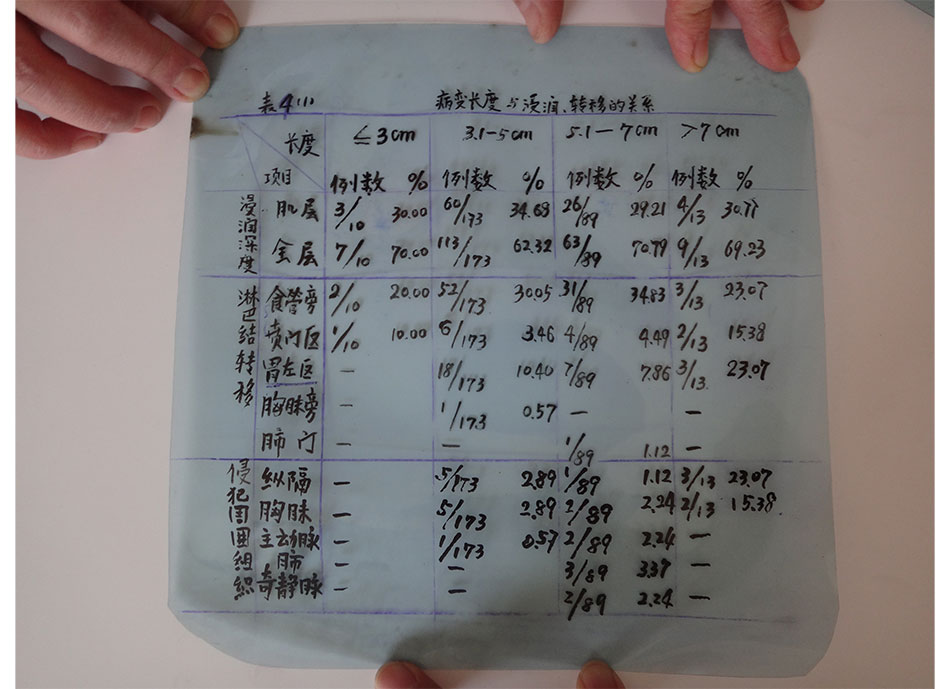 表4(1) 病变长度与浸润、转移的关系
长度 ≤3cm 3.1-5cm 5.1-7cm >7cm
项目 例数 % 例数 % 例数 % 例数 %
浸润深度 肌层 3/10 30.00 60/173 34.68 26/89 29.21 4/13 30.77
全层 7/10 70.00 113/173 62.32 63/89 70.79 9/13 69.23
淋巴结转移 食管旁 2/10 20.00 52/173 30.05 31/89 34.83 3/13 23.07
贲门区 1/10 10.00 6/173 3.46 4/89 4.49 2/13 15.38
胃左区 — 18/173 10.40 7/89 7.86 3/13 23.07
胸腺旁 — 1/173 0.57 — —
肺门 — — 1/89 1.12 —
侵犯周围组织 纵隔 — 5/173 2.89 1/89 1.12 3/13 23.07
胸腺 — 5/173 2.89 2/89 2.24 2/13 15.38
主动脉 — 1/173 0.57 2/89 2.24 —
肺 — — 3/89 3.37 —
奇静脉 — — 2/89 2.24 —